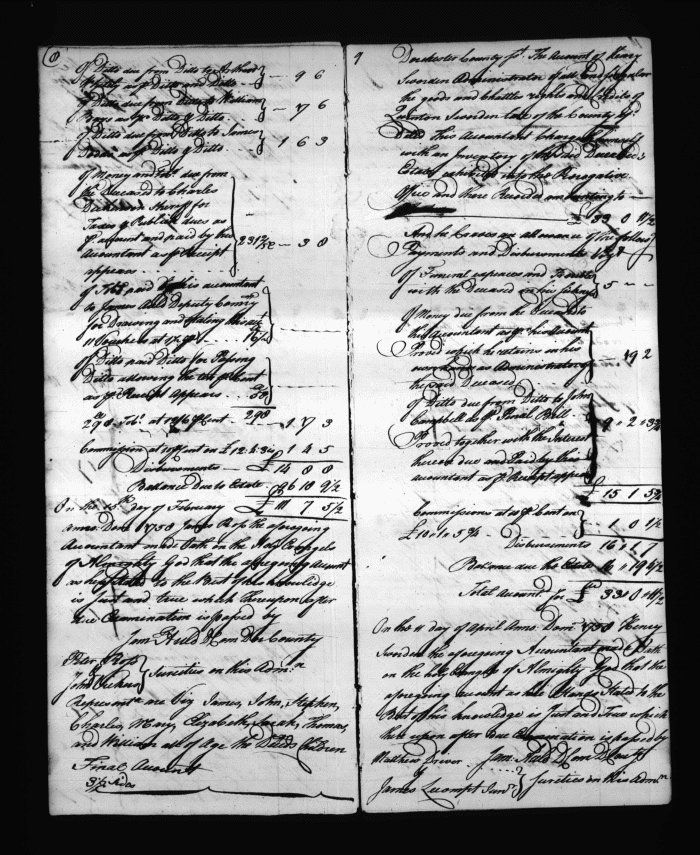 8
Of Ditto due from Ditto to Arthur
as pr Ditto and Ditto } — 9 6
Of Ditto due from Ditto to William
as pr Ditto & Ditto } — 7 6
Of Ditto due from Ditto to James
as pr Ditto & Ditto } 1 6 3
Of Money and due from
the Deceased to Charles
Dickinson Sheriff for
Taxes & Publick dues as
pr account and paid by this
Accountant as pr Receipt
appears — 3 8
Of paid by this accountant
to James Auld Deputy Comry
for Drawing and Stating this acct
11 Vouchers at
Of Ditto paid Ditto for Passing
Ditto allowing the pr Cent
as pr Receipt Appears
298 Tobo at 12/6 pr Cent 298 — 1 17 3
Commission at 10 pr Cent on £ 12.4.3 is 1 4 5
Disbursements — £ 14 8 8
Ballance Due to Estate 96 18 9 1/2
£ 111 7 5 1/2
On the day of February
anno Dom 1750 James Ross the aforegoing
Accountant made Oath on the Holy Evangels
of Almighty God that the aforegoing Account
as here Stated to the Best of his knowledge
is Just and true which thereupon after
due Examination is passed by
Jam Auld D Com Dor County
Peter Ross
John } Sureties on this Admn
Representa are viz James, John, Stephen,
Charles, Mary, Elizabeth, Sarah, Thomas,
and William all of Age the Decds Children
Final Account
3 1/2 Sides
9
Dorchester County sst The Account of Henry
Sworden Administrator of all and singular
the goods and Chattles rights and Credits of
Quinton Sworden late of the County
Decd This Accountant Charges himself
with an Inventory of the said Deceaseds
Estate exhibited into the Prerogative
Office and there Recorded amounting to
£ 33 0 11 1/2
And he Craves an allowance of the following
Payments and Disbursements Viz
Of Funeral expences and
with the Deceased in his } 5 — —
Of Money due from the Deceased to
this Accountant as pr his Account
Proved which he retains in his
own hands as Administrator of
the said Deceased — 19 2
Of Ditto due from Ditto to John
Campbell as pr Penal Bill
Proved together with the Interest
thereon due and Paid by this
accountant as pr Receipt appears 9 " 2 " 3 3/4
£ 15 1 5 3/4
Commissions at 10 pr Cent on
£ 10 " 1 " 5 3/4 } 1 0 1 1/2
Disbursements 16 " 1 " 7
Ballance due the Estate 16 " 19 4 1/2
Total Amount for £ 33 " 0 " 11 1/2
On the 11 day of April Anno Dom 1750 Henry
Sworden the aforegoing Accountant made Oath
on the holy Evangels of Almighty God that the
aforegoing Account as here Stated to the
Best of his knowledge is Just and True which
there upon after Due Examination is passed by
Jam Auld D Com D County
Matthew Driver
James Lecompt Junr } Sureties on this Admn